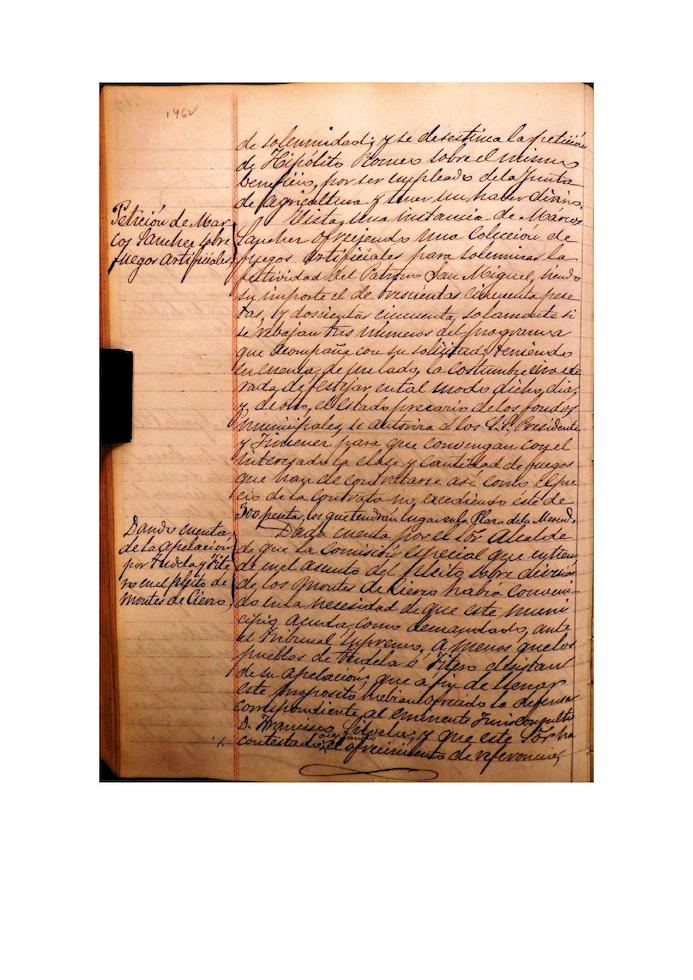 1962
de solemnidad; y se desestima la petición
de Hipólito Romeo sobre el mismo
beneficio, por ser empleado de la Junta
de Agricultura y tener un haber diario.
Petición de Mar
cos Sanchez sobre
fuegos artificiales.
Vista una instancia de Marcos
Sanchez ofreciendo una colección de
fuegos artificiales para solemnizar la
festividad del Patrono San Miguel, siendo
su importe el de trescientas cincuenta pese
tas, y doscientas cincuenta, solamente si
se rebajan tres números del programa
que acompaña con su solicitud; teniendo
en cuenta, de un lado, la costumbre
rada de festejar en tal modo dicho dia,
y, de otro, el estado precario de los fondos
municipales, se autoriza á los S.S. Presidente
y Jimenez para que convengan con el
interesado la clase y cantidad de fuegos
que han de contratarse asi como el pre
cio de la contrata no excediendo este de
300 pesetas, los que tendrán lugar en la Plaza de la Merced.
Dando cuenta
de la apelación
por Tudela y Fite
ro en el pleito de
Montes de Cierzo.
Dada cuenta por el Sor. Alcalde
de que la comisión especial que entien
de en el asunto del pleito sobre división
de los montes de Cierzo habia conveni-
do en la necesidad de que este muni
cipio acuda, como demandado, ante
el Tribunal Supremo, a menos que los
pueblos de Tudela ó Fitero desistan
de su apelación; que a fin de llenar
este proposito habian ofrecido la defensa
correspondiente al eminente Jurisconsulto
D. Francisco Silvela; y que este Sor. ha
contestado el ofrecimiento de referencia,